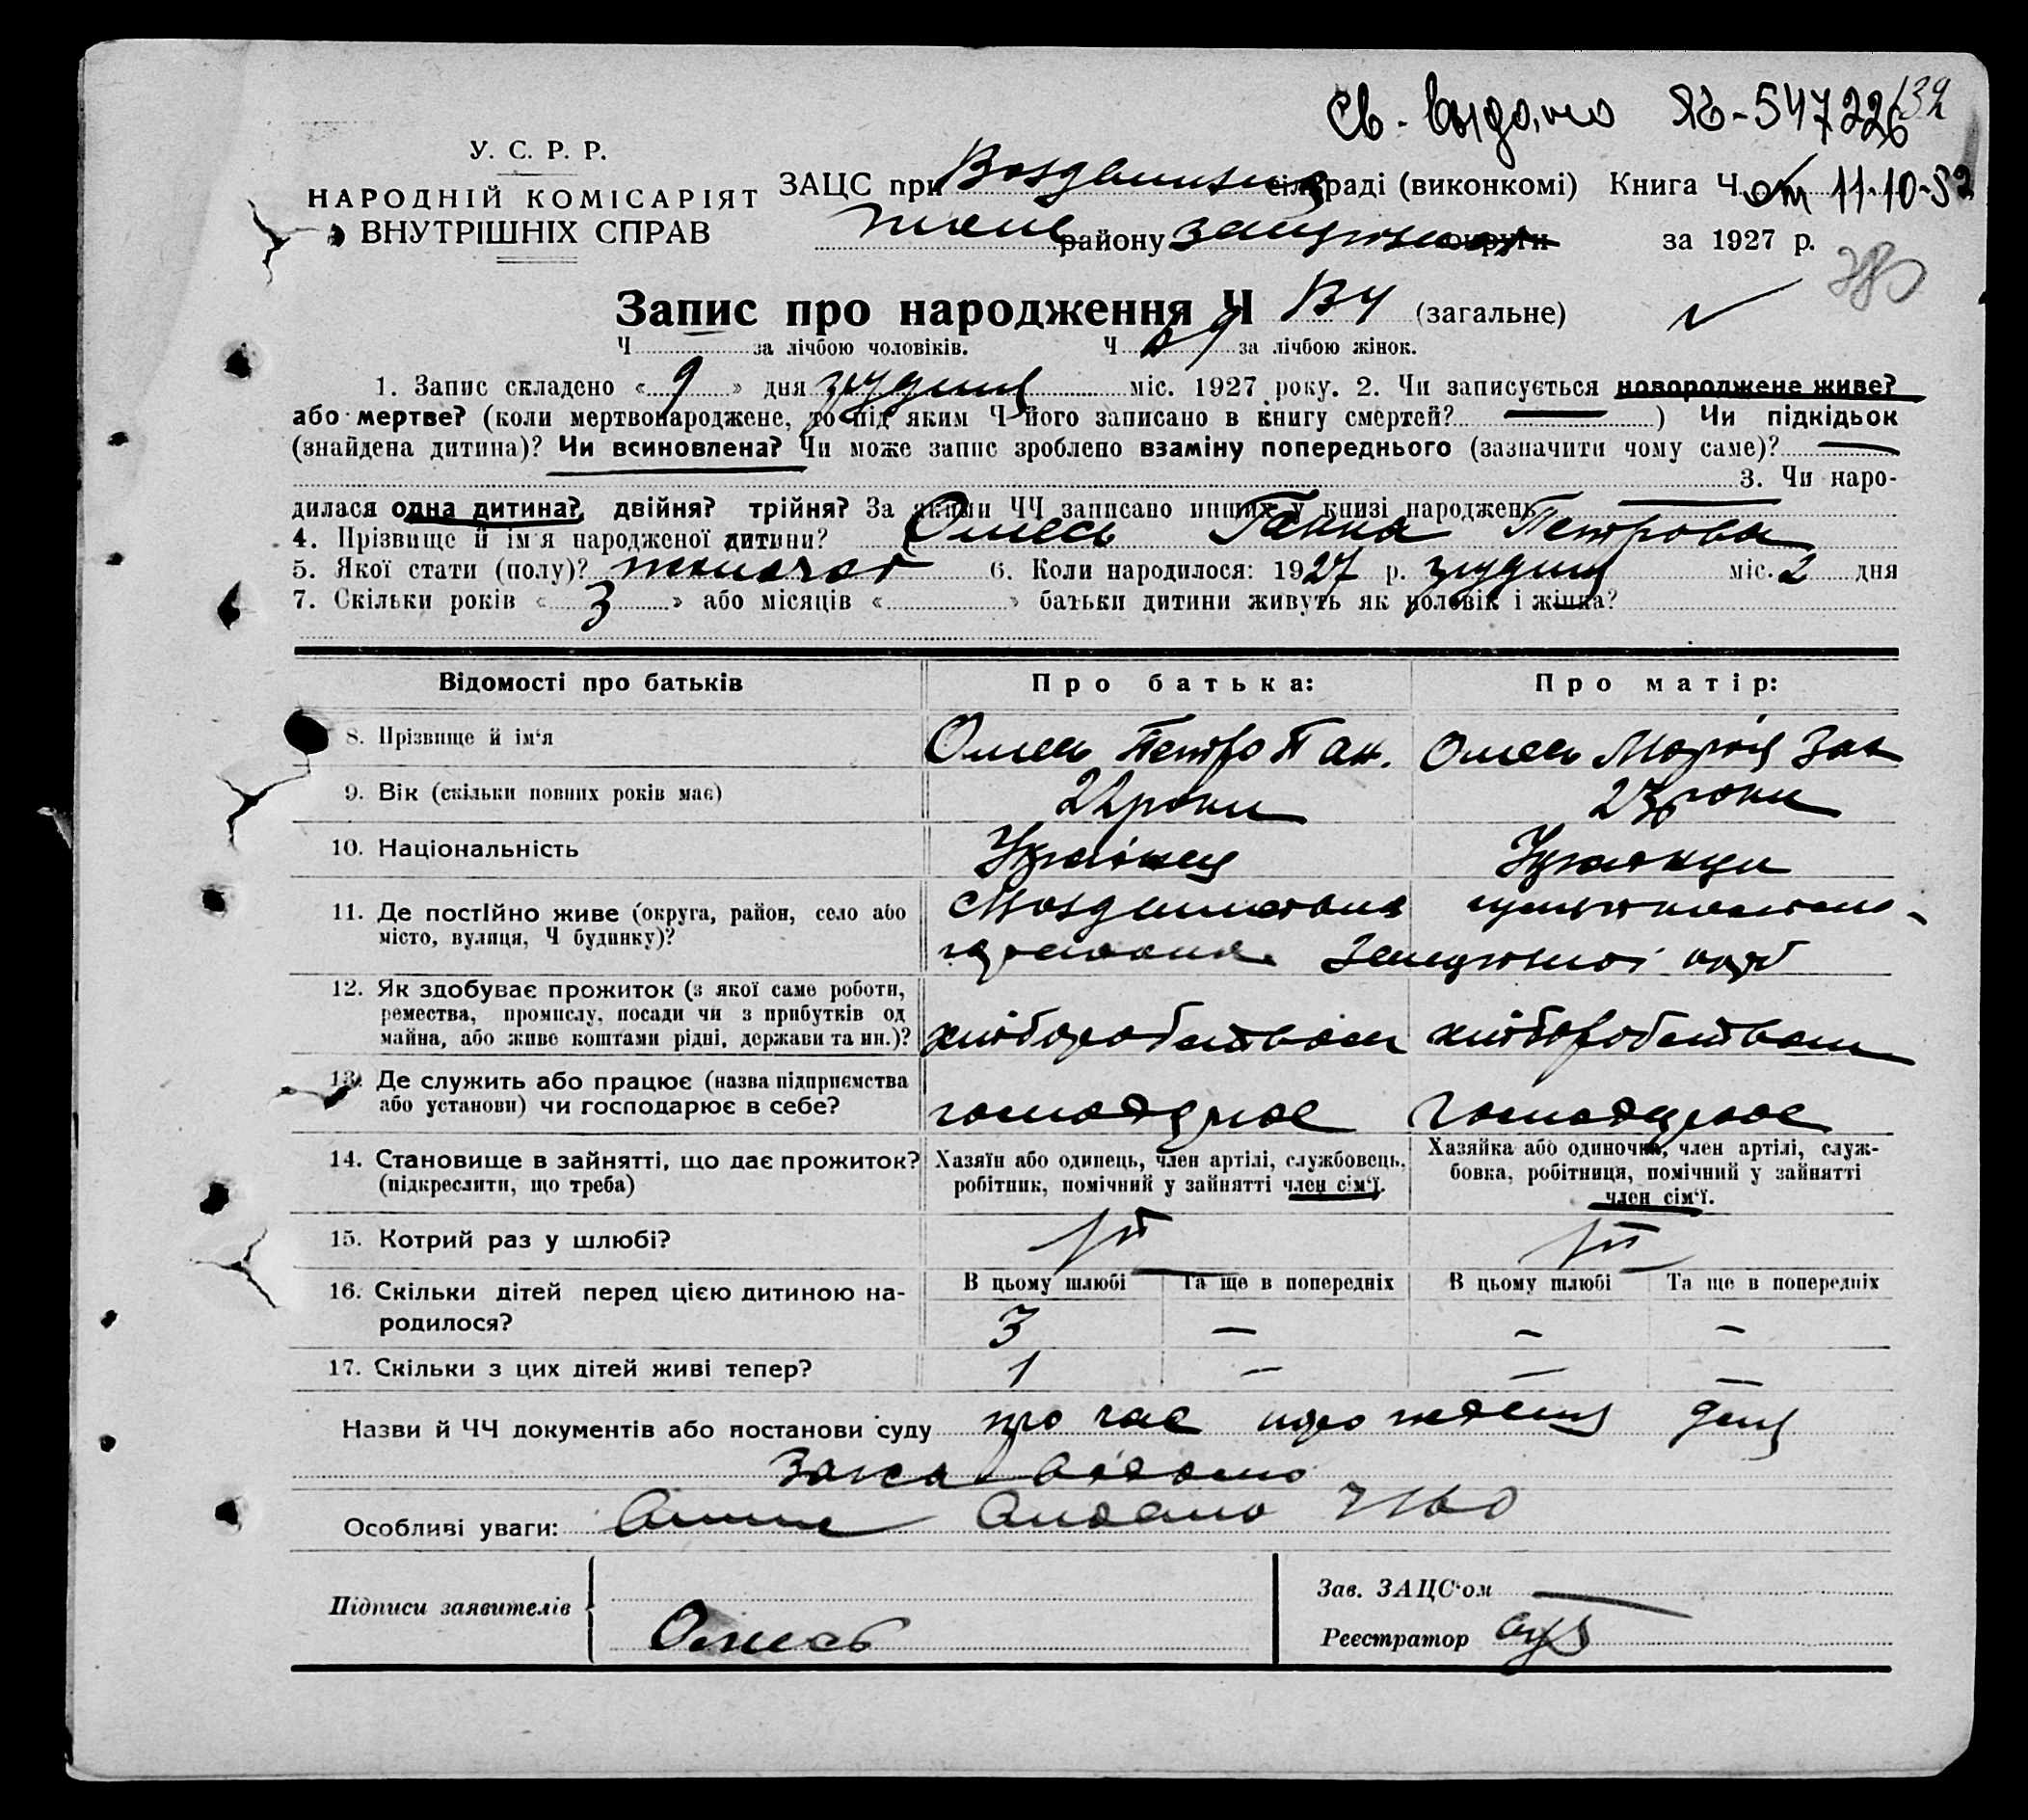 Св. выдано ЯБ-547226 132
У. С. Р. Р.
НАРОДНІЙ КОМІСАРІЯТ
ВНУТРІШНІХ СПРАВ
ЗАЦС при сільраді (виконкомі) Книга Ч. от 11-10-52
району округи за 1927 р.
Запис про народження Ч (загальне)
Ч за лічбою чоловіків. Ч за лічбою жінок.
1. Запис складено « 9 » дня грудня міс. 1927 року. 2. Чи записується новороджене живе?
або мертве? (коли мертвонароджене, то під яким Ч його записано в книгу смертей? ) Чи підкідьок
(знайдена дитина)? Чи всиновлена? Чи може запис зроблено взаміну попереднього (зазначити чому саме)?
3. Чи наро-
дилася одна дитина?, двійня? трійня? За якими ЧЧ записано инших у книзі народжень
4. Прізвище й ім'я народженої дитини? Олесь Ганна Петрова
5. Якої стати (полу)? 6. Коли народилося: 1927 р. грудня міс. 2 дня
7. Скільки років « 3 » або місяців « » батьки дитини живуть як чоловік і жінка?
Відомості про батьків Про батька: Про матір:
8. Прізвище й ім'я Олесь Петро Пан. Олесь Марія Зах
9. Вік (скільки повних років має) 22 роки 23 роки
10. Національність Українец Українци
11. Де постійно живе (округа, район, село або
місто, вулиця, Ч будинку)?
12. Як здобуває прожиток (з якої саме роботи,
ремества, промислу, посади чи з прибутків од
майна, або живе коштами рідні, держави та ин.)? хліборобством хліборобством
13. Де служить або працює (назва підприємства
або установи) чи господарює в себе? господарює господарює
14. Становище в зайнятті, що дає прожиток?
(підкреслити, що треба)
Хазяїн або одинець, член артілі, службовець,
робітник, помічний у зайнятті член сім'ї.
Хазяйка або одиночка, член артілі, служ-
бовка, робітниця, помічний у зайнятті
член сім'ї.
15. Котрий раз у шлюбі? 1й 1й
В цьому шлюбі Та ще в попередніх В цьому шлюбі Та ще в попередніх
16. Скільки дітей перед цією дитиною на-
родилося? 3 – – –
17. Скільки з цих дітей живі тепер? 1 – – –
Назви й ЧЧ документів або постанови суду про час
Особливі уваги:
Підписи заявителів Олесь
Зав. ЗАЦС'ом
Реєстратор